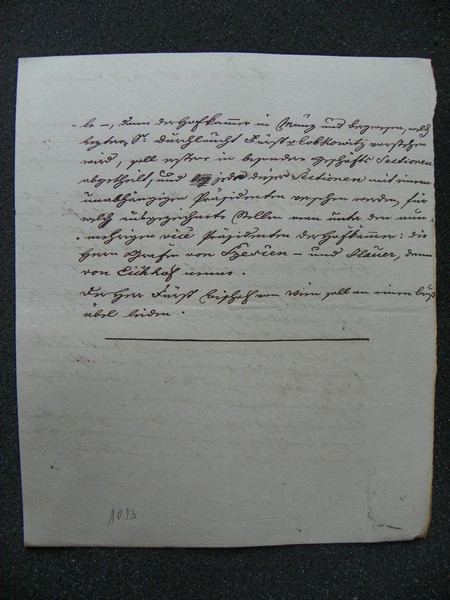 le –, dann der Hofkammer in Münz und Bergwesen, welch
letzter, Sr. Durchlaucht Fürst v Lobkowitz vorstehen
wird, soll erstere in besondere Geschäfts Sectionen
abgetheilt, und jede dieser Sectionen mit einem
unabhängigen Präsidenten versehen werden, für
welch ausgezeichnete Stellen man unter den nun-
-mehrigen vice Präsidenten der Hofkammer: die
Herrn Grafen von und dann
von Eichhof nennt.
Der Herr Fürst Bischof von Wien soll an einem Brust
übel leiden.
1013